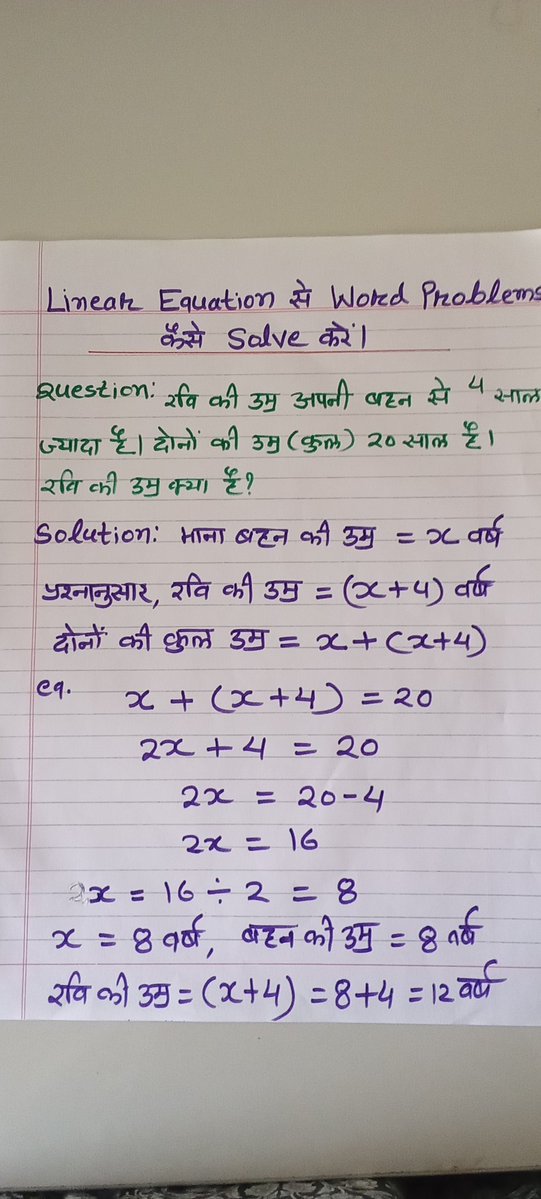 Linear Equation से Word Problems
कैसे Solve करें।
Question: रवि की उम्र अपनी बहन से 4 साल
ज्यादा है। दोनों की उम्र (कुल) 20 साल है।
रवि की उम्र क्या है?
Solution: माना बहन की उम्र = x वर्ष
प्रश्नानुसार, रवि की उम्र = (x+4) वर्ष
दोनों की कुल उम्र = x + (x+4)
eq. x + (x+4) = 20
2x + 4 = 20
2x = 20-4
2x = 16
x = 16 ÷ 2 = 8
x = 8 वर्ष, बहन की उम्र = 8 वर्ष
रवि की उम्र = (x+4) = 8+4 = 12 वर्ष